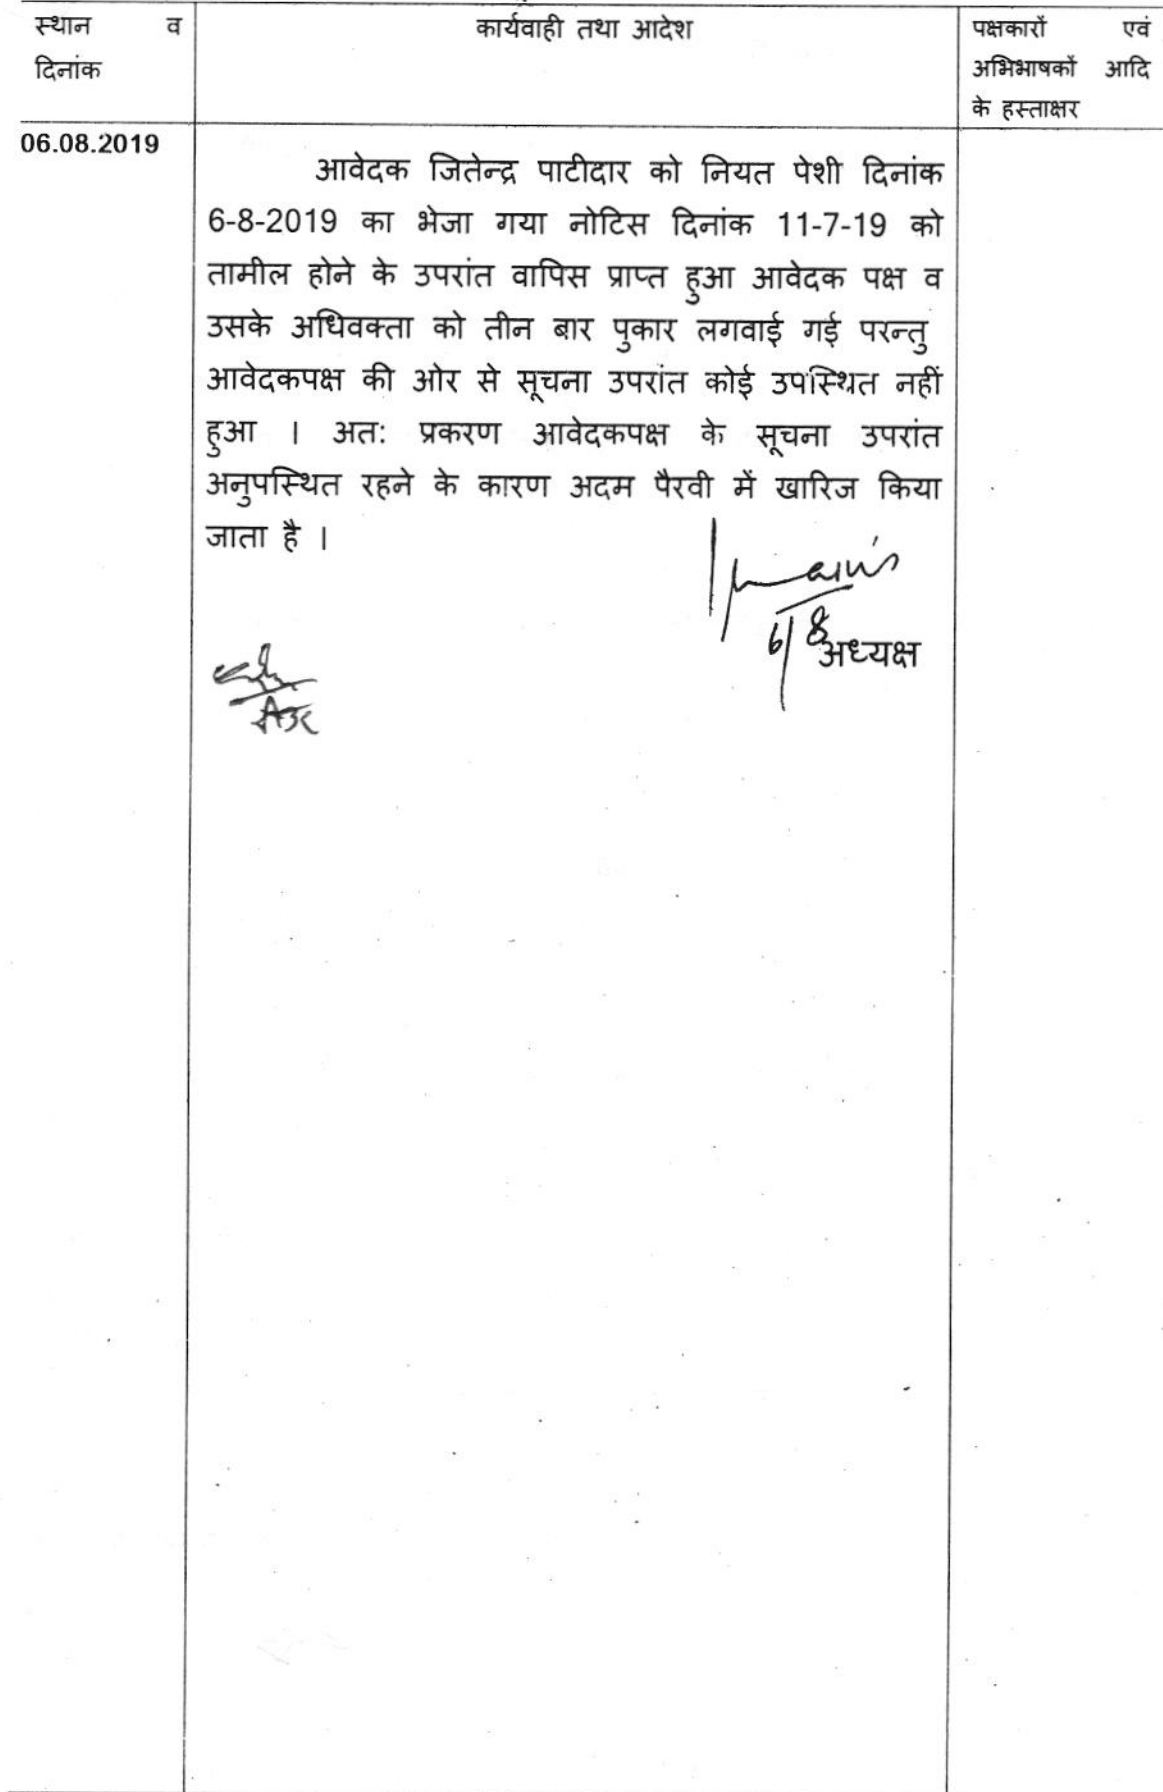 स्थान व
दिनांक
कार्यवाही तथा आदेश
पक्षकारों एवं
अभिभाषकों आदि
के हस्ताक्षर
06.08.2019
आवेदक जितेन्द्र पाटीदार को नियत पेशी दिनांक
6-8-2019 का भेजा गया नोटिस दिनांक 11-7-19 को
तामील होने के उपरांत वापिस प्राप्त हुआ आवेदक पक्ष व
उसके अधिवक्ता को तीन बार पुकार लगवाई गई परन्तु
आवेदकपक्ष की ओर से सूचना उपरांत कोई उपस्थित नहीं
हुआ । अतः प्रकरण आवेदकपक्ष के सूचना उपरांत
अनुपस्थित रहने के कारण अदम पैरवी में खारिज किया
जाता है ।
6/8
अध्यक्ष